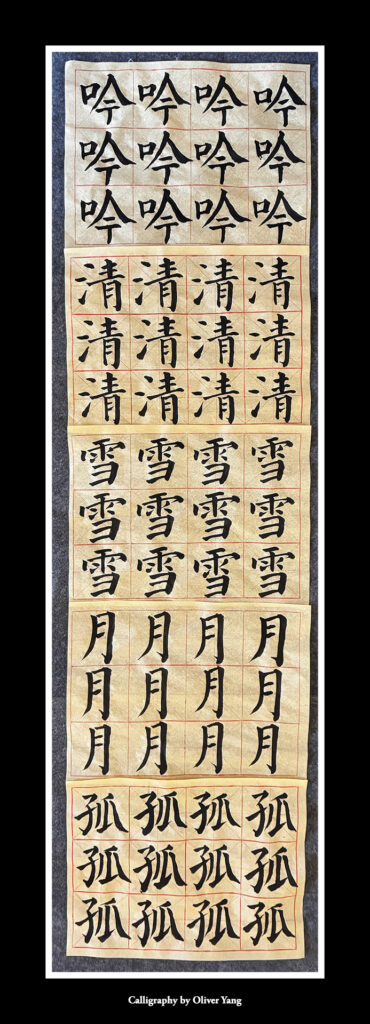 吟吟吟吟
吟吟吟吟
吟吟吟吟
清清清清
清清清清
清清清清
雪雪雪雪
雪雪雪雪
雪雪雪雪
月月月月
月月月月
月月月月
孤孤孤孤
孤孤孤孤
孤孤孤孤
Calligraphy by Oliver Yang